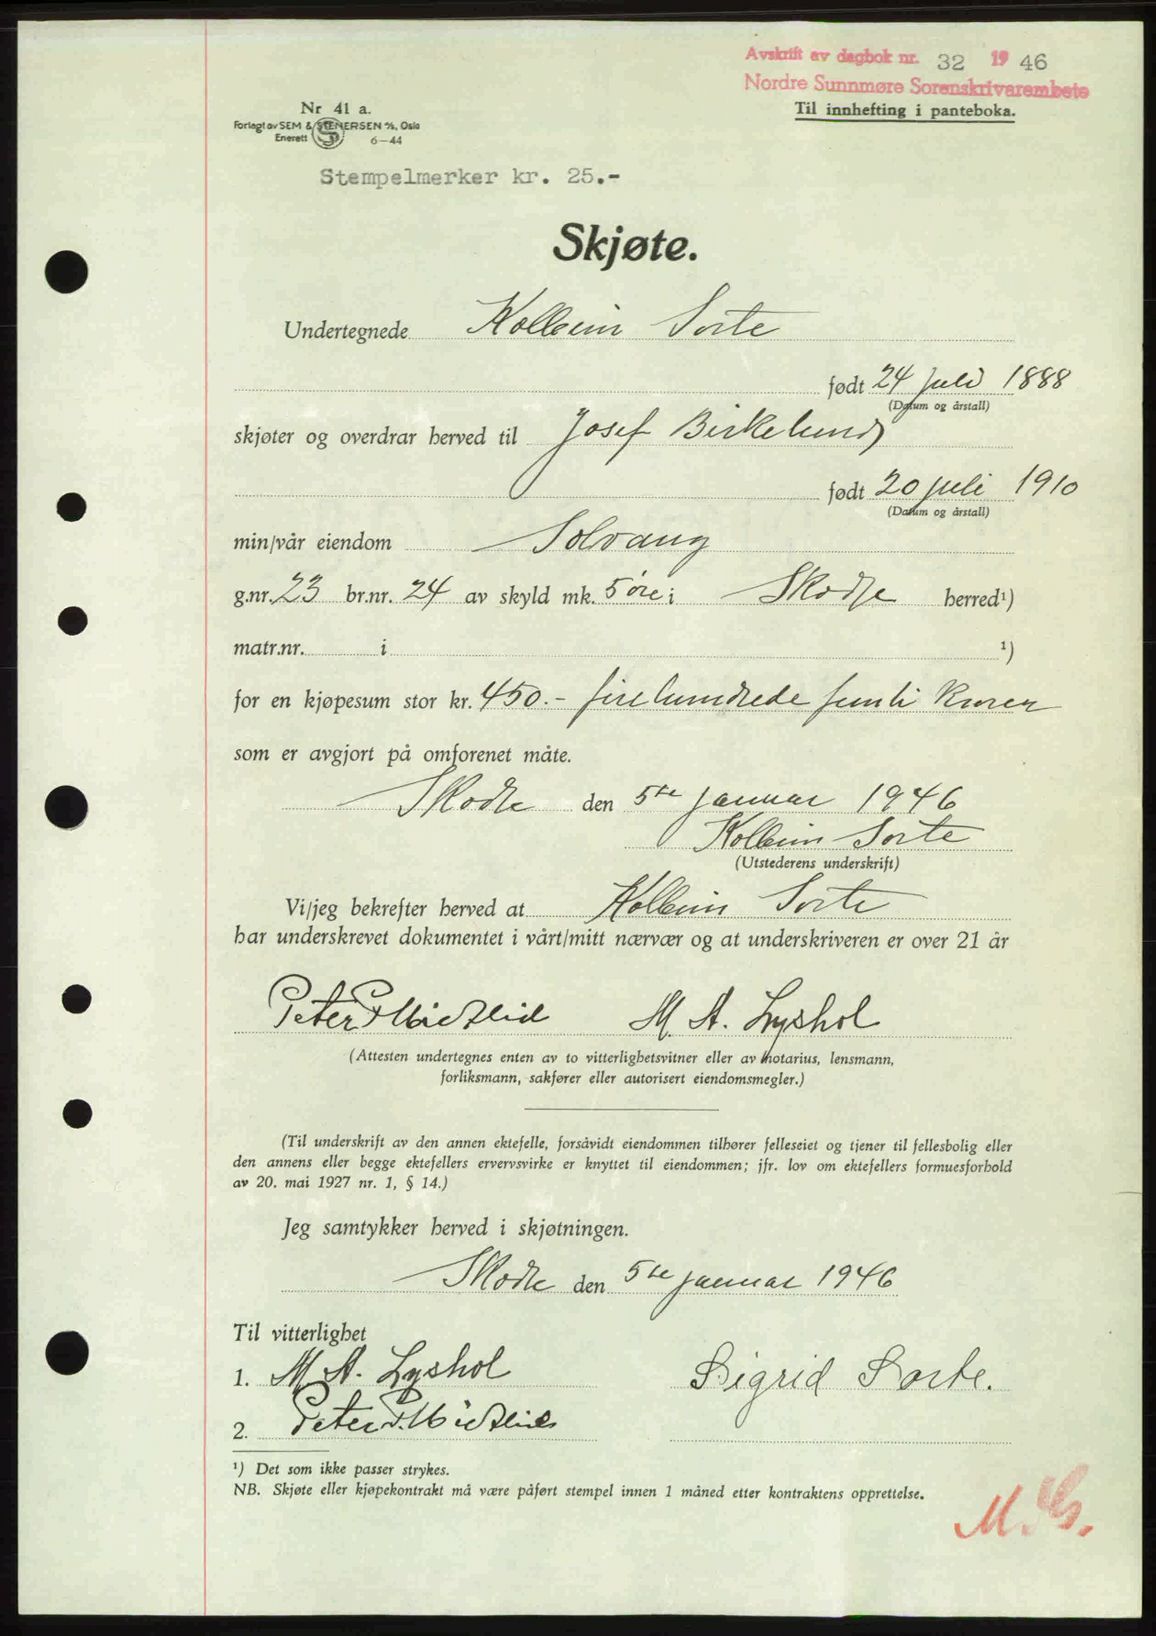 Avskrift av dagbok nr. 32 1946
Nordre Sunnmøre Sorenskrivarembete
Til innhefting i panteboka.
Nr 41 a.
Forlagt av SEM & STENERSEN A/S, Oslo
Enerett 6-44
Stempelmerker kr. 25.-
Skjøte.
Undertegnede Kolbein Sorte
født 24 juli 1888
(Datum og årstall)
skjøter og overdrar herved til Josef Birkelund
født 20 juli 1910
(Datum og årstall)
min/vår eiendom Solvang
g.nr. 23 br.nr. 24 av skyld mk. 5 øre i Skodje herred¹)
matr.nr. i ¹)
for en kjøpesum stor kr. 450.- firehundrede femti kroner
som er avgjort på omforenet måte.
Skodje den 5te januar 1946
Kolbein Sorte
(Utstederens underskrift)
Vi/jeg bekrefter herved at Kolbein Sorte
har underskrevet dokumentet i vårt/mitt nærvær og at underskriveren er over 21 år
Peter P. M. A. Lyshol
(Attesten undertegnes enten av to vitterlighetsvitner eller av notarius, lensmann,
forliksmann, sakfører eller autorisert eiendomsmegler.)
(Til underskrift av den annen ektefelle, forsåvidt eiendommen tilhører felleseiet og tjener til fellesbolig eller
den annens eller begge ektefellers ervervsvirke er knyttet til eiendommen; jfr. lov om ektefellers formuesforhold
av 20. mai 1927 nr. 1, § 14.)
Jeg samtykker herved i skjøtningen.
Skodje den 5te januar 1946
Til vitterlighet
1. M. A. Lyshol Sigrid Sorte.
2. Peter P.
¹) Det som ikke passer strykes.
NB. Skjøte eller kjøpekontrakt må være påført stempel innen 1 måned etter kontraktens opprettelse.